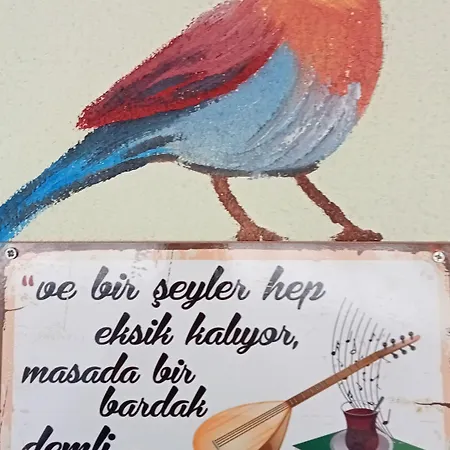 "ve bir şeyler hep
eksik kalıyor,
masada bir
bardak
demli